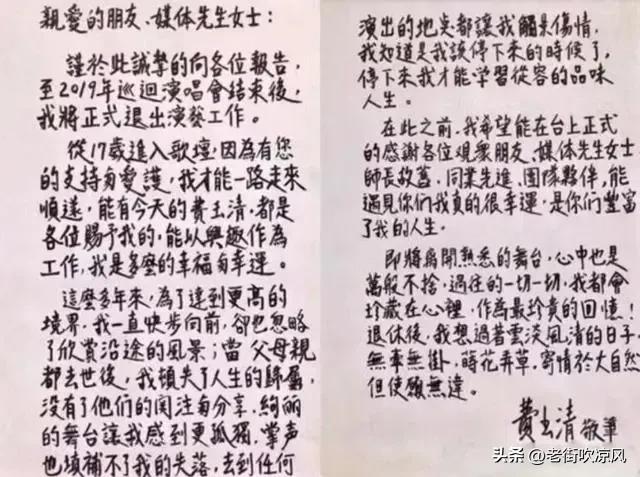 親愛的朋友、媒体先生女士：
謹於此誠摯的向各位報告，
至2019年巡迴演唱會結束後，
我將正式退出演藝工作。
從17歲進入歌壇，因為有您
的支持与愛護，我才能一路走來
順遂，能有今天的費玉清，都是
各位賜予我的，能以興趣作為
工作，我是多麼的幸福与幸運。
這麼多年來，為了達到更高的
境界，我一直快步向前，卻也忽略
了欣賞沿途的風景；當父母親
都去世後，我頓失了人生的歸屬，
沒有了他們的関注与分享，絢麗
的舞台讓我感到更孤獨，掌声
也填補不了我的失落，去到任何
演出的地点都讓我觸景傷情，
我知道是我該停下來的時候了，
停下來我才能学習從容的品味
人生。
在此之前，我希望能在台上正式
的感謝各位观眾朋友、媒体先生女士
師長故舊，同業先進、團隊夥伴，能
遇見你们我真的很幸運，是你们豐富
了我的人生。
即將离開熟悉的舞台，心中也是
萬般不捨，過往的一切一切，我都會
珍藏在心裡，作為最珍貴的回憶！
退休後，我想過著雲淡風清的日子，
無牽無掛，蒔花弄草，寄情於大自然
但使願無違。
費玉清 敬筆
头条 @老街吹凉风